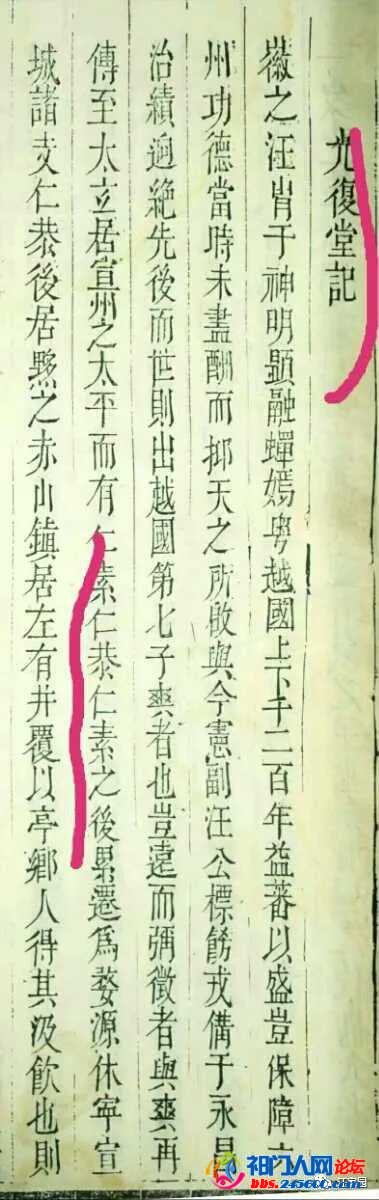 光復堂記
徽之汪胄于神明顯融蟬嫣粵越國上下千二百年益蕃以盛豈保障六
州功德當時未盡酬而抑天之所啟與今憲副汪公標飭戎備于永昌
治績逈絶先後而世則出越國第七子爽者也豈遠而彌徵者與爽再
傳至太立居宣州之太平而有仁素仁恭仁素之後累遷爲婺源休寧宣
城諸支仁恭後居黟之赤山鎮居左有井覆以亭鄉人得其汲飲也則
祁门人网论坛
bbs.245600.com